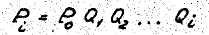 P_i = P_0 Q_1 Q_2 ... Q_i